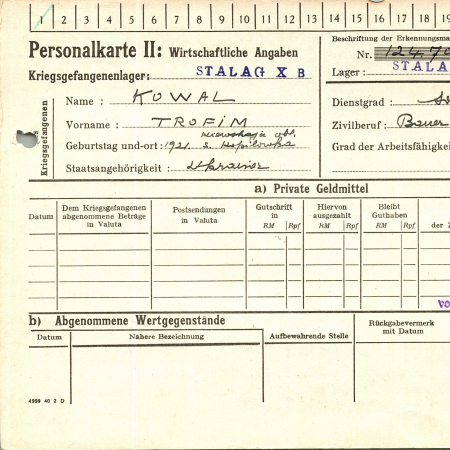 1 2 3 4 5 6 7 8 9 10 11 12 13 14 15 16 17 18 19
Personalkarte II: Wirtschaftliche Angaben
Kriegsgefangenenlager: STALAG X B
Beschriftung der Erkennungsma
Nr.
Lager: STALA
des Kriegsgefangenen
Name: KOWAL
Vorname: TROFIM
Geburtstag und-ort: 1921.
Staatsangehörigkeit: Ukrainer
Dienstgrad:
Zivilberuf: Bauer
Grad der Arbeitsfähigkei
a) Private Geldmittel
Datum
Dem Kriegsgefangenen abgenommene Beträge in Valuta
Postsendungen in Valuta
Gutschrift in
RM Rpf
Hiervon ausgezahlt
RM Rpf
Bleibt Guthaben
RM Rpf
der
vo
b) Abgenommene Wertgegenstände
Datum
Nähere Bezeichnung
Aufbewahrende Stelle
Rückgabevermerk mit Datum
4999 40 2 D